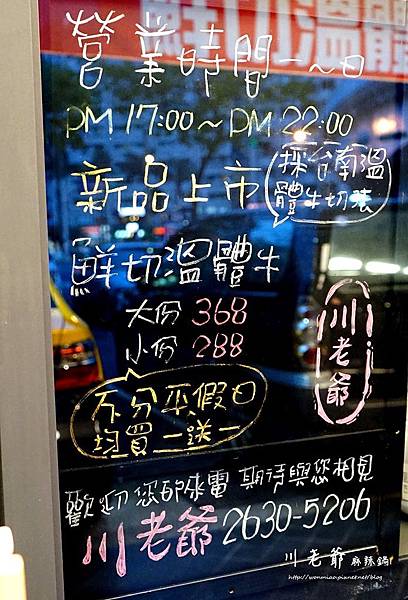 營業時間一~日
PM 17:00~PM 22:00
新品上市
採台南溫
體牛切法
鮮切溫體牛
大份 368
小份 288
川老爺
不分平假日
均買一送一
歡迎您即來電 期待與您相見
川老爺 2630-5206
川老爺 麻辣鍋
http://wonmiao.pixnet.net/blog